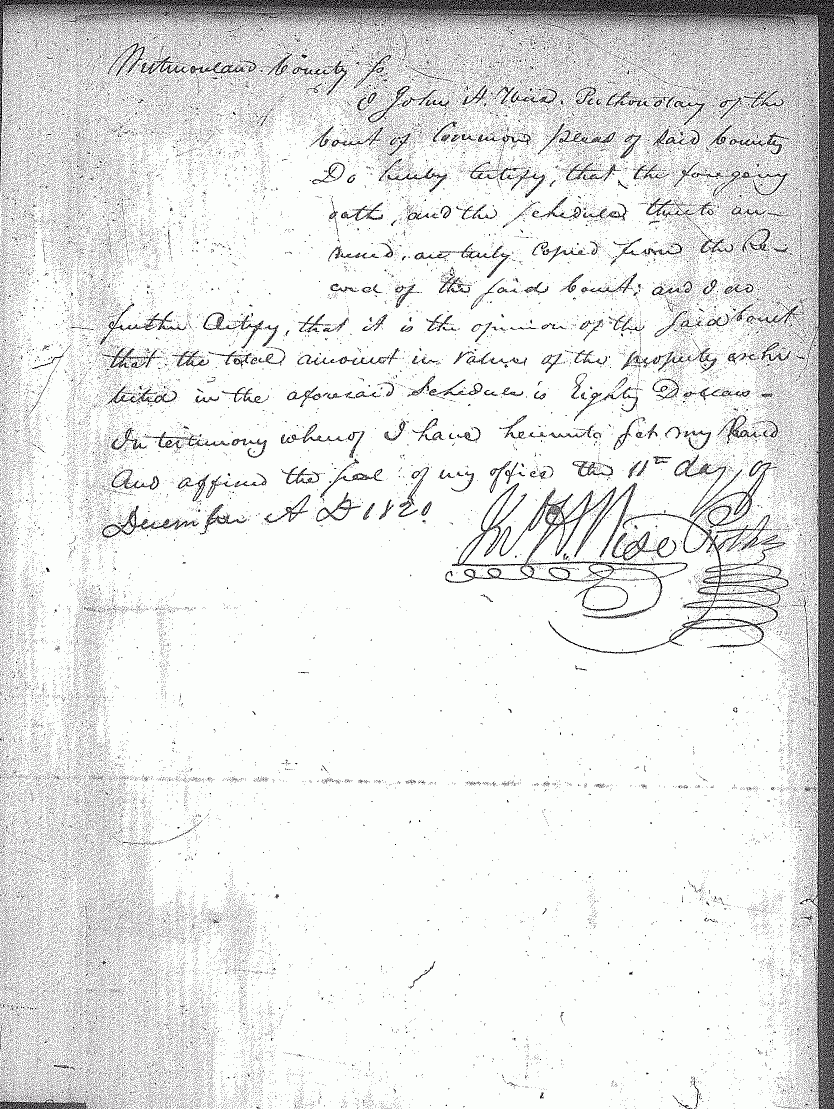 Westmorland County ss.
I John H. Wise. Prothonotary of the
Court of Common pleas of said County
Do hereby Certify, that, the foregoing
oath, and the schedule thereto an-
nexed, are truly Copied from the Re-
cord of the said Court; and I do
further Certify, that it is the opinion of the said Court
that the total amount in Value of the property exhi-
bited in the aforesaid Schedule is Eighty Dollars -
In testimony whereof I have hereunto set my Hand
And affixed the seal of my office the 11th day of
December A D 1820
Jno H. Wise Prothy